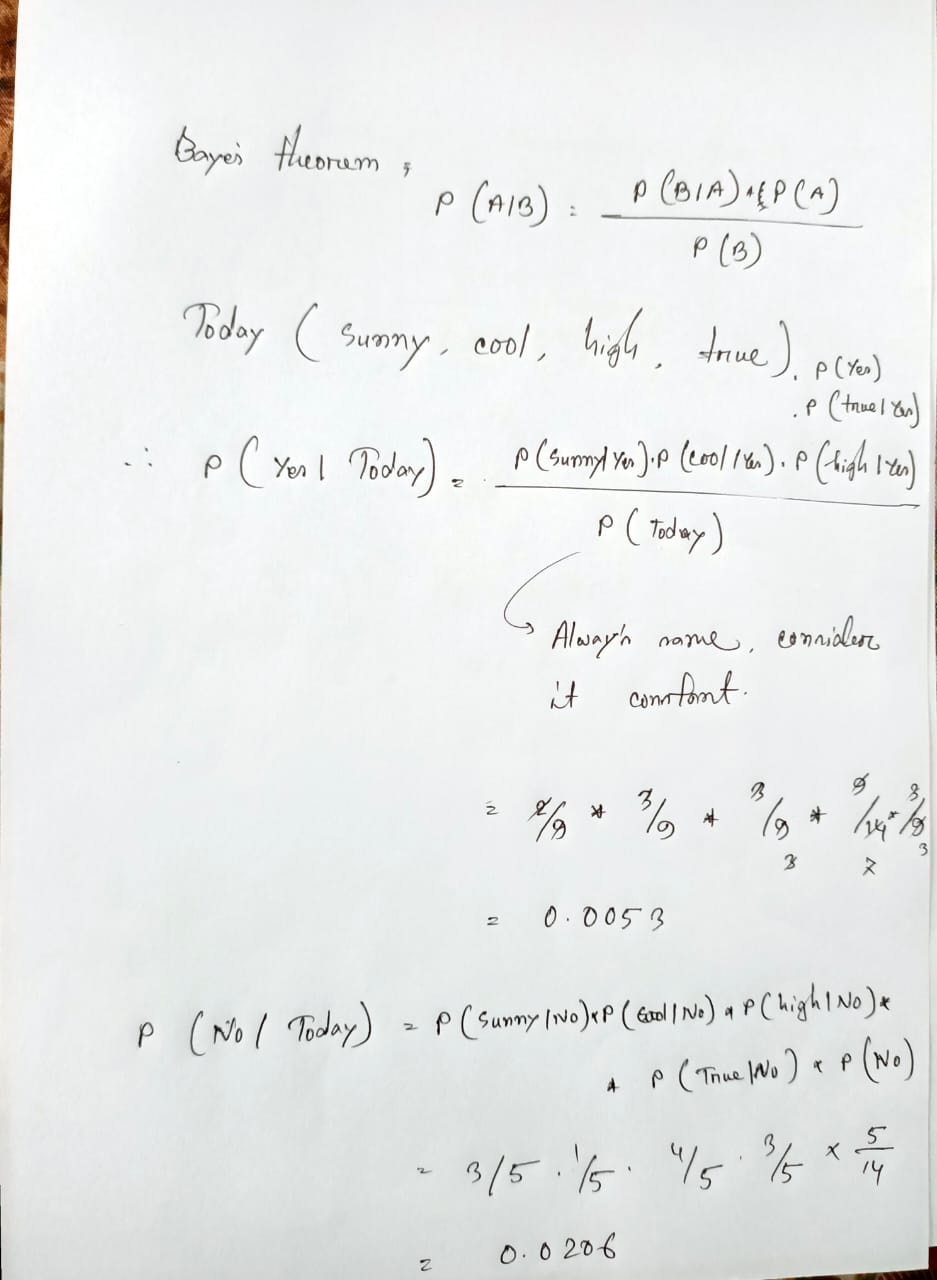 Baye's theorem ;
P (A|B) = P (B|A) * P (A)
P (B)
Today ( sunny, cool, high, true ).
. P (Yes)
. P (true | Yes)
∴ P ( Yes | Today ) = P (sunny | Yes) . P (cool | Yes) . P (high | Yes)
P ( Today )
Always same, consider
it constant.
= 2/9 * 3/9 * 3/9 * 9/14 * 3/9
3 7 3
= 0.0053
P (No | Today) = P (sunny | No) * P (cool | No) * P (high | No) *
* P (True | No) * P (No)
= 3/5 . 1/5 . 4/5 . 3/5 × 5/14
= 0.0206